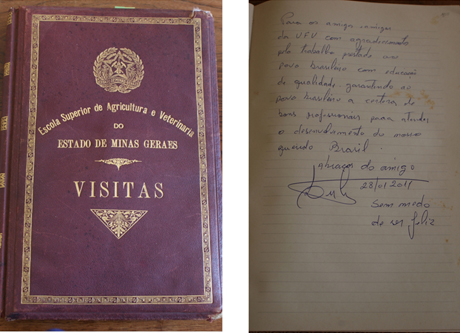 Escola Superior de Agricultura e Veterinaria
DO
ESTADO DE MINAS GERAES
VISITAS
Para os amigos
da UFV com agradecimento
pelo trabalho prestado aos
povo brasileiro com educação
de qualidade, garantindo ao
povo brasileiro a certeza de
bons profissionais para atender
o desenvolvimento do nosso
querido Brasil.
abraços do amigo
28/01/2011
Sem medo
de ser feliz